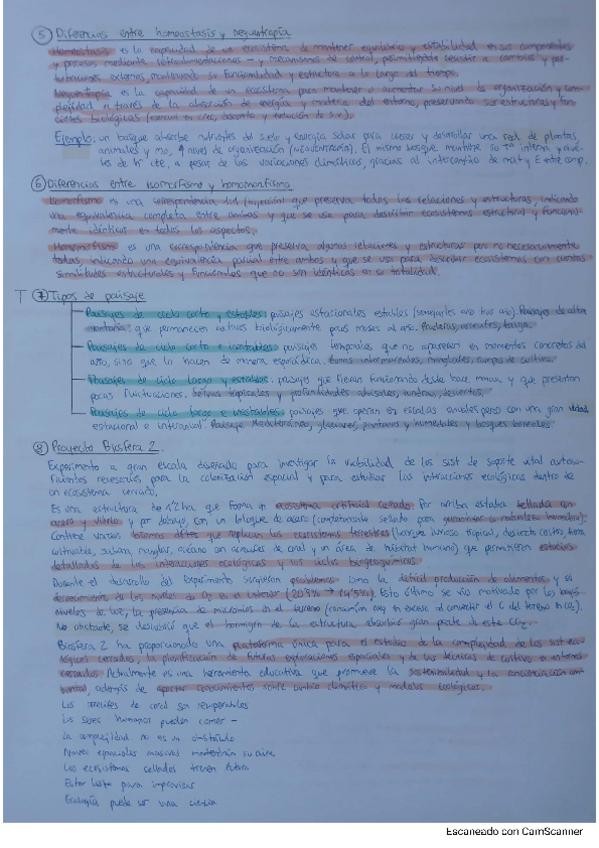 ⑤ Diferencias entre homeostasis y neguentropía
Homeostasis es la capacidad de un ecosistema de mantener equilibrio y estabilidad en sus componentes
y procesos mediante retroalimentaciones - y mecanismos de control, permitiéndole resistir a cambios y per-
turbaciones externas, manteniendo su funcionalidad y estructura a lo largo del tiempo.
Neguentropía es la capacidad de un ecosistema para mantener o aumentar su nivel de organización y com-
plejidad a través de la absorción de energía y materia del entorno, preservando sus estructuras y fun-
ciones biológicas
Ejemplo: un bosque absorbe nutrientes del suelo y energía solar para crecer y desarrollar una red de plantas,
animales y mo, ↑ nivel de organización (neguentropía). El mismo bosque mantiene su Tª interna y nive-
les de hª cte, a pesar de las variaciones climáticas, gracias al intercambio de mat y E entre comp.
⑥ Diferencias entre isomorfismo y homomorfismo
Isomorfismo es una correspondencia que preserva todas las relaciones y estructuras, indicando
una equivalencia completa entre ambas y que se usa para describir ecosistemas estructural y funcional-
mente idénticos en todos los aspectos.
Homomorfismo es una correspondencia que preserva algunas relaciones y estructuras pero no necesariamente
todas, indicando una equivalencia parcial entre ambos y que se usa para describir ecosistemas con ciertas
similitudes estructurales y funcionales que no son idénticas en su totalidad.
T ⑦ Tipos de paisaje
Paisajes de ciclo corto y estables: paisajes estacionales estables (semejantes año tras año). Paisajes de alta
montaña: que permanecen activos biológicamente pocos meses al año. Praderas, taiga.
Paisajes de ciclo corto e inestables: paisajes temporales que no aparecen en momentos concretos del
año, sino que lo hacen de manera esporádica. Zonas intermareales, manglares, campos de cultivo.
Paisajes de ciclo largo y estables: paisajes que llevan funcionando desde hace mucho y que presentan
pocas fluctuaciones. Selvas tropicales y profundidades abisales, tundras, desiertos.
Paisajes de ciclo largo e inestables: paisajes que operan en escalas anuales pero con una gran
estacional e interanual. Paisaje Mediterráneo, glaciares, pantanos y humedales y bosques boreales.
⑧ Proyecto Biosfera 2.
Experimento a gran escala diseñado para investigar la viabilidad de los sist de soporte vital autosu-
ficientes necesarios para la colonización espacial y para estudiar las interacciones ecológicas dentro de
un ecosistema cerrado.
Es una estructura de 1'2 ha que forma un ecosistema artificial cerrado. Por arriba estaba sellada con
acero y vidrio y por debajo, con un bloque de acero (completamente sellado para
Contiene varios biomas que replican los ecosistemas terrestres (bosque lluvioso tropical, desierto costero, tierra
cultivable, sabana, manglar, océano con arrecifes de coral y un área de hábitat humano) que permitieron estudios
detallados de las interacciones ecológicas y los ciclos biogeoquímicos.
Durante el desarrollo del experimento surgieron problemas como la difícil producción de alimentos y el
decrecimiento de los niveles de O₂ en el interior (20'9% → 14'5%). Esto último se vio motivado por los bajos
niveles de luz, la presencia de microbios en el terreno (consumían oxíg en exceso al convertir el C del terreno en CO₂).
No obstante, se descubrió que el hormigón de la estructura absorbió gran parte de este CO₂.
Biosfera 2 ha proporcionado una plataforma única para el estudio de la complejidad de los sist eco-
lógicos cerrados, la planificación de futuras exploraciones espaciales y de las técnicas de cultivo en entornos
cerrados. Actualmente es una herramienta educativa que promueve la sostenibilidad y la concienciación am-
biental, además de aportar conocimientos sobre cambio climático y modelos ecológicos.
Los arrecifes de coral son recuperables
Los seres humanos pueden comer -
La complejidad no es un obstáculo
Naves espaciales mantendrán su aire
Los ecosistemas sellados tienen futuro
Estar listo para improvisar
Ecología puede ser una ciencia
Escaneado con CamScanner